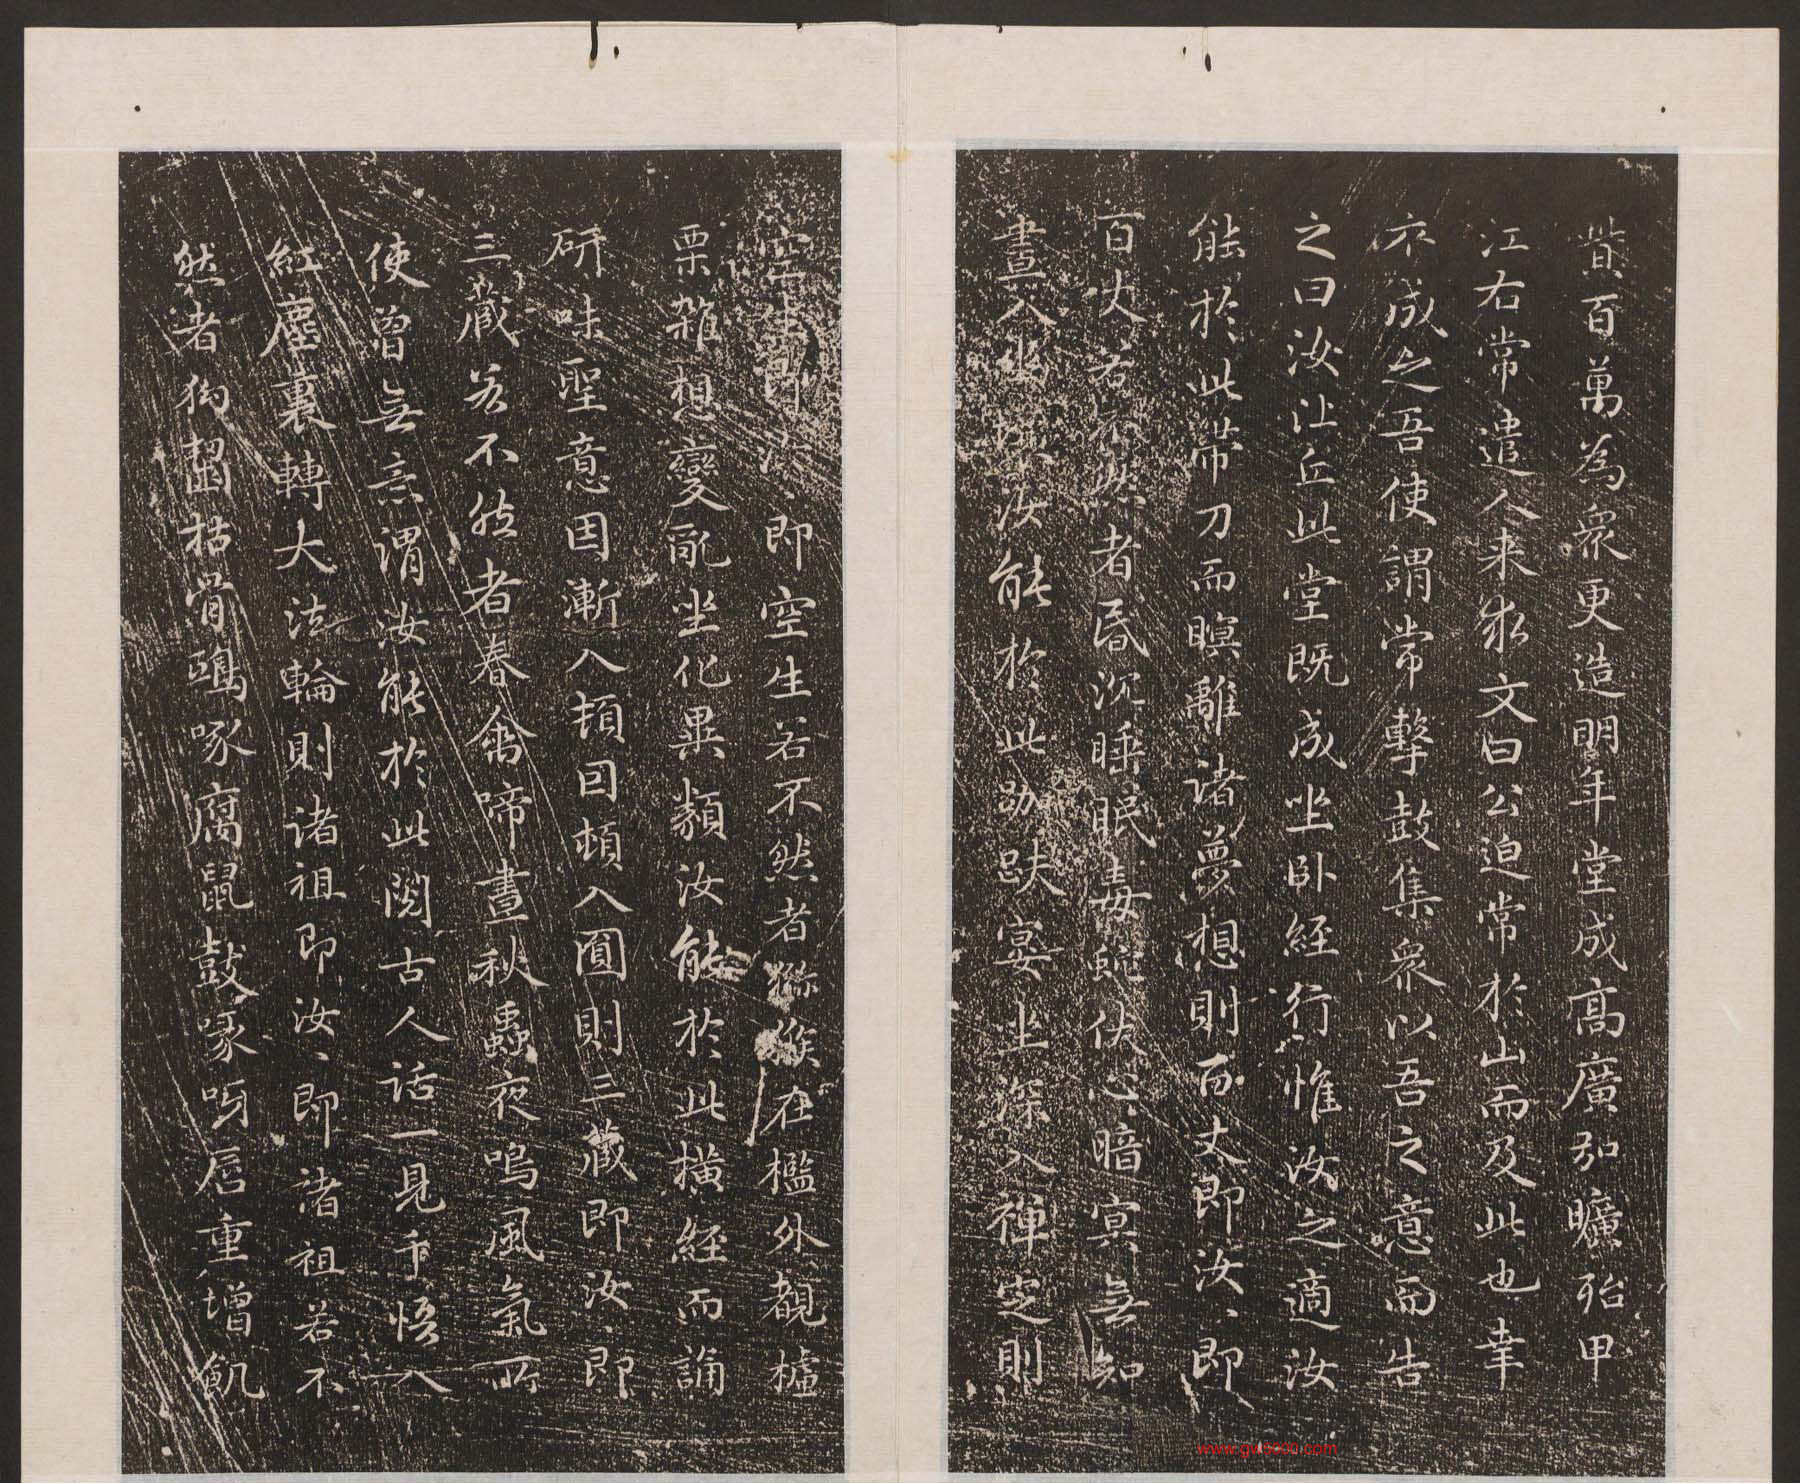 貲百萬為衆更造明年堂成髙廣弘曠殆甲
江右常遣人来求文曰公迫常於山而及此也幸
不成之吾使謂常擊鼓集衆以吾之意而告
之曰汝比丘此堂既成坐卧経行惟汝之適汝
能於此帶刀而瞑離諸夢想則百丈即汝、即
百丈若不然者昏沉睡眠毒蛇伏心暗㝠無知
晝入幽汝能於此跏趺宴坐深入禪定則
空生即汝、即空生若不然者猕猴在檻外覩樝
栗雜想變亂坐化異類汝能於此橫経而誦
研味聖意因漸入頓囙頓入圓則三藏即汝、即
三藏若不然者春禽啼晝秋蟲夜鳴風氣所
使曾無意謂汝能於此閲古人話一見千悟入
紅塵裏轉大法輪則諸祖即汝、即諸祖若不
然者狗齧枯骨鴟啄腐鼠鼓喙呀唇重增飢
www.gw5000.com